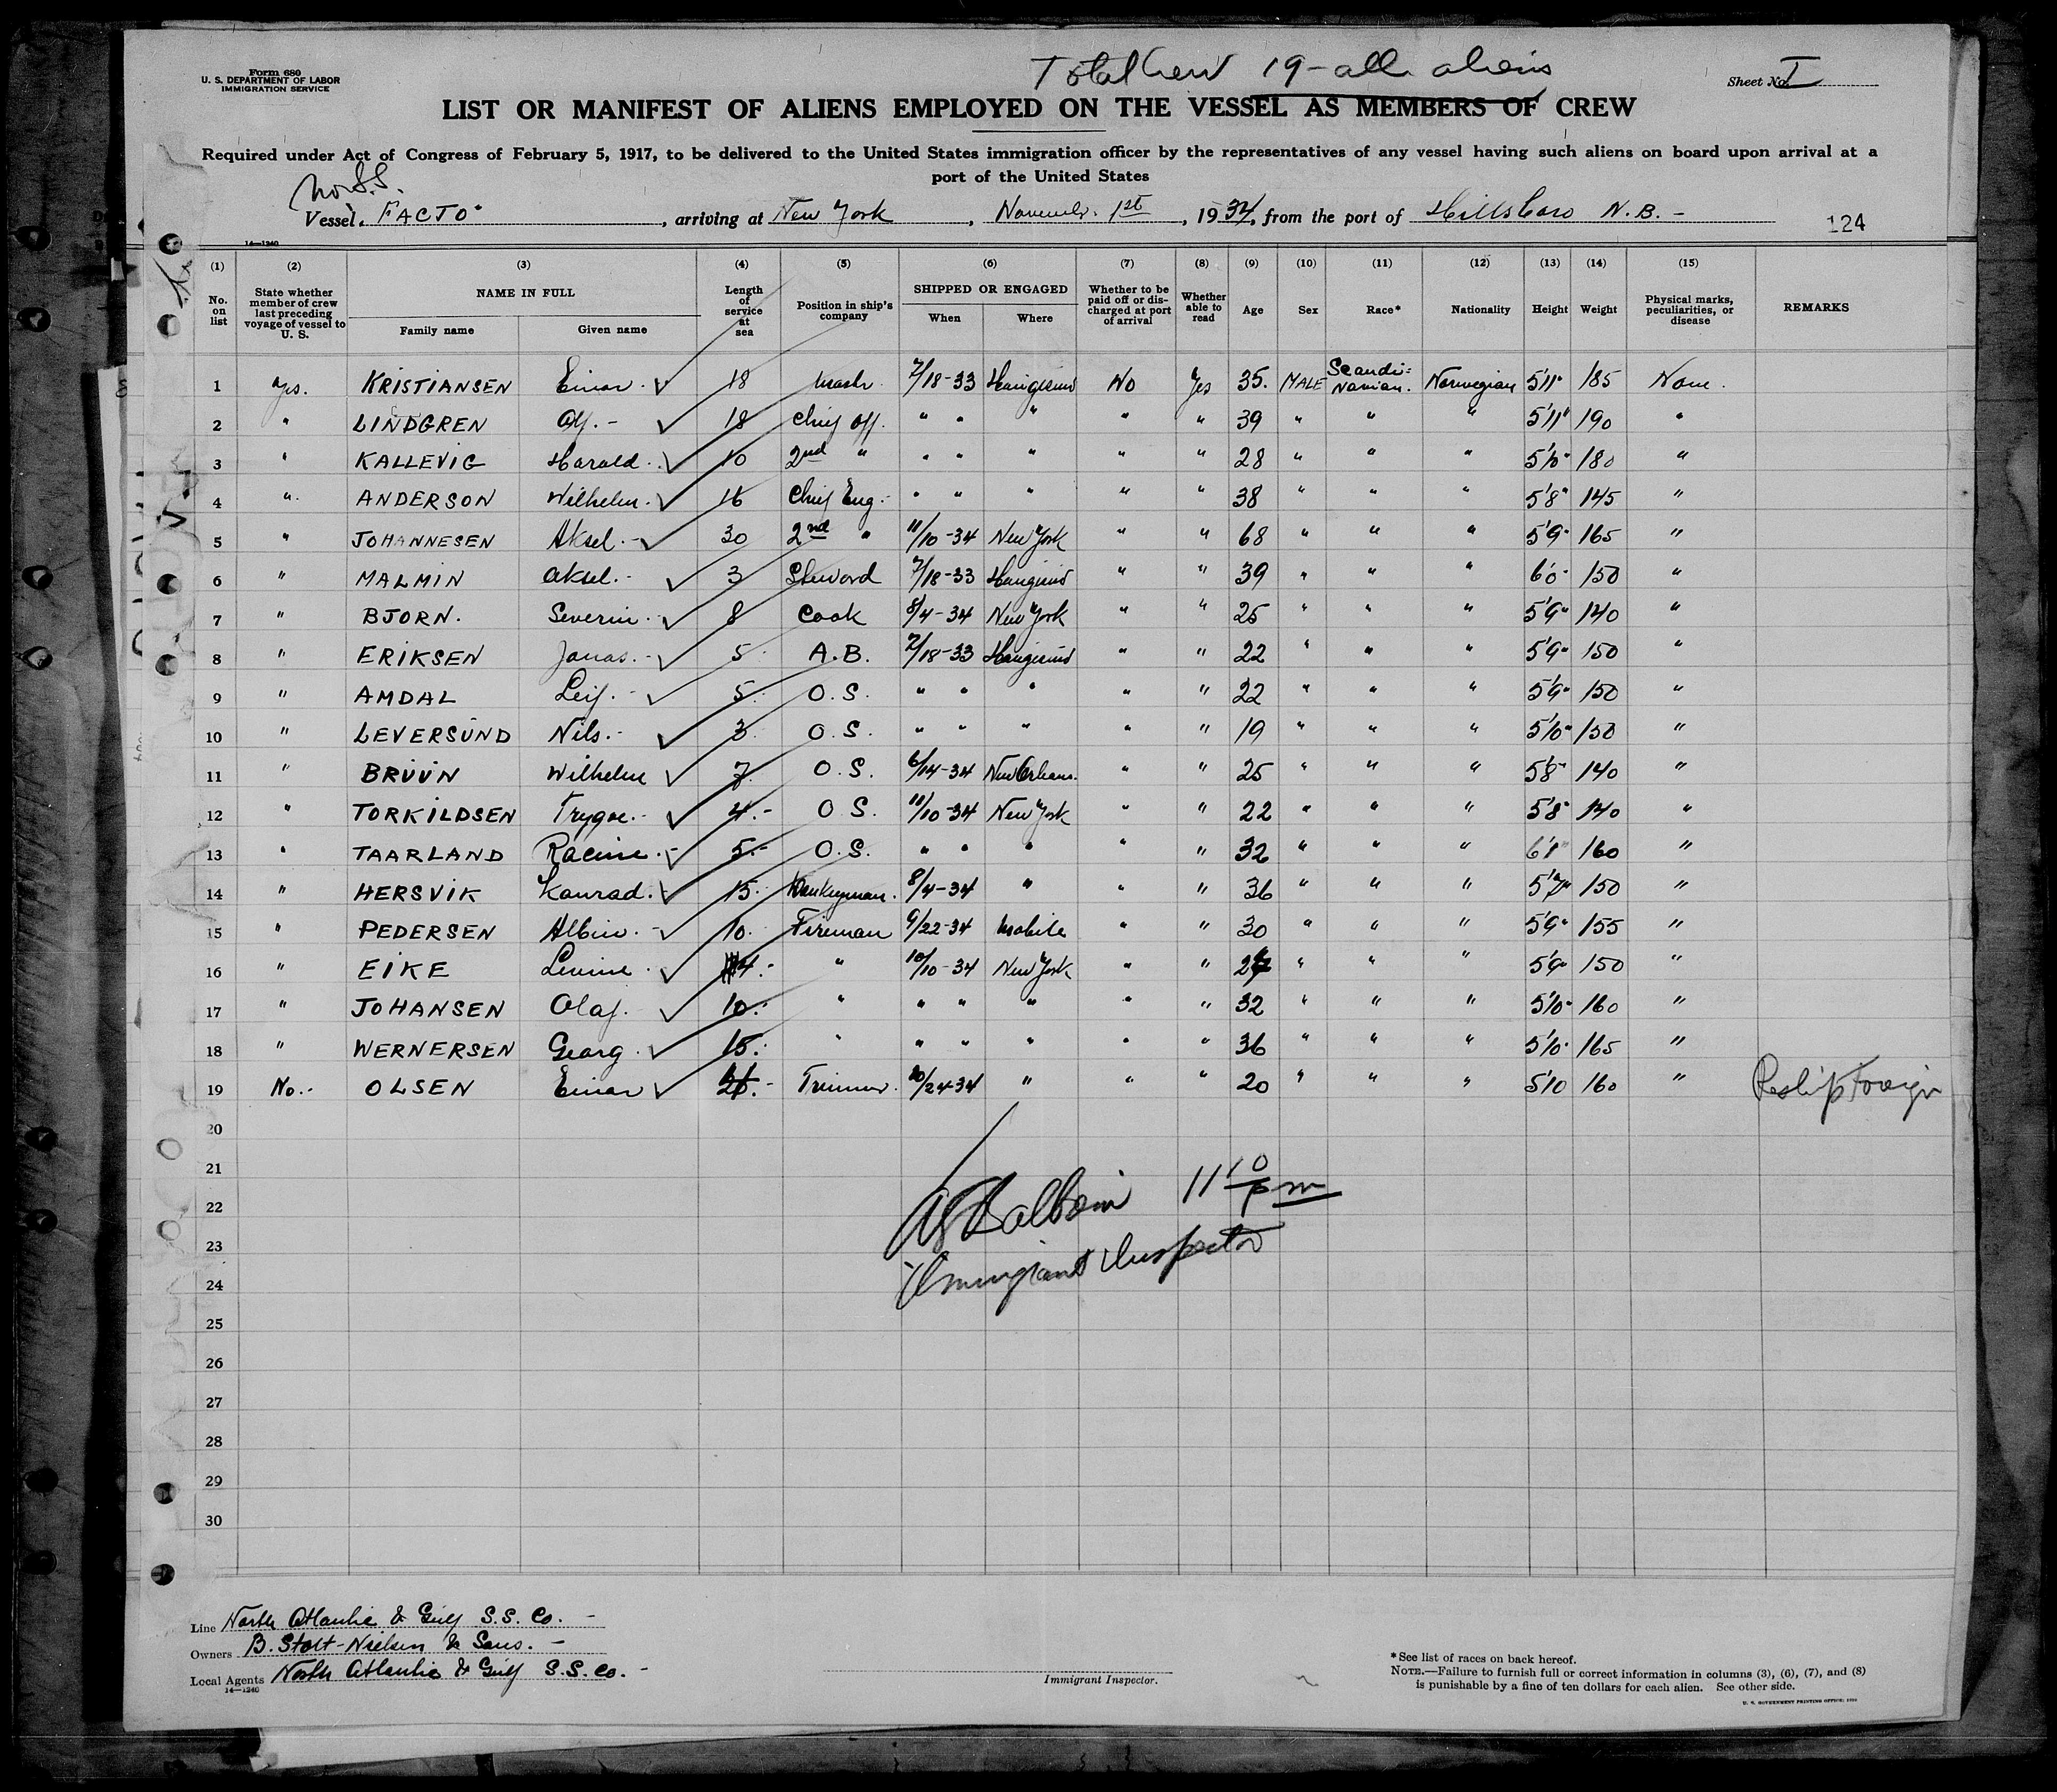 Total Crew 19 - all aliens
Form 680
U. S. DEPARTMENT OF LABOR
IMMIGRATION SERVICE
Sheet No. I
LIST OR MANIFEST OF ALIENS EMPLOYED ON THE VESSEL AS MEMBERS OF CREW
Required under Act of Congress of February 5, 1917, to be delivered to the United States immigration officer by the representatives of any vessel having such aliens on board upon arrival at a
port of the United States
Nor S.S.
Vessel FACTO , arriving at New York , November 1st , 1934, from the port of Hillsboro N.B. -
124
14—1240
(1) (2) (3) (4) (5) (6) (7) (8) (9) (10) (11) (12) (13) (14) (15)
No. on list | State whether member of crew last preceding voyage of vessel to U. S. | NAME IN FULL Family name Given name | Length of service at sea | Position in ship's company | SHIPPED OR ENGAGED When Where | Whether to be paid off or discharged at port of arrival | Whether able to read | Age | Sex | Race* | Nationality | Height | Weight | Physical marks, peculiarities, or disease | REMARKS
1 Yes. KRISTIANSEN Einar. 18 Mastr. 7/18-33 Haugesund No Yes 35. MALE Scandinavian. Norwegian 5'11" 185 None.
2 " LINDGREN Alf. - 18 Chief Off. " " " " " 39 " " " 5'11" 190 "
3 " KALLEVIG Harald. 10 2nd " " " " " " 28 " " " 5'10" 180 "
4 " ANDERSON Wilhelm. 16 Chief Eng. " " " " " 38 " " " 5'8" 145 "
5 " JOHANNESEN Aksel. - 30 2nd " 11/10-34 New York " " 68 " " " 5'9" 165 "
6 " MALMIN Aksel. - 3 Steward 7/18-33 Haugesund " " 39 " " " 6'0" 150 "
7 " BJORN. Severin. 8 Cook 8/4-34 New York " " 25 " " " 5'9" 140 "
8 " ERIKSEN Jonas. - 5 A.B. 7/18-33 Haugesund " " 22 " " " 5'9" 150 "
9 " AMDAL Leif. - 5 O.S. " " " " " 22 " " " 5'9" 150 "
10 " LEVERSUND Nils. - 3 O.S. " " " " " 19 " " " 5'10" 150 "
11 " BRUUN Wilhelm 7 O.S. 6/14-34 New Orleans. " " 25 " " " 5'8" 140 "
12 " TORKILDSEN Trygve. - 4. - O.S. 11/10-34 New York " " 22 " " " 5'8" 140 "
13 " TAARLAND Racine. - 5. - O.S. " " " " " 32 " " " 6'1" 160 "
14 " HERSVIK Konrad. 15. Donkeyman. 8/4-34 " " " 36 " " " 5'7" 150 "
15 " PEDERSEN Albin. - 10. Fireman 9/22-34 Mobile " " 30 " " " 5'9" 155 "
16 " EIKE 4. - " 10/10-34 New York " " " " " 5'9" 150 "
17 " JOHANSEN Olaf. 10. " " " " " " 32 " " " 5'10" 160 "
18 " WERNERSEN Georg. 15. " " " " " " 36 " " " 5'10" 165 "
19 No. - OLSEN Einar Trimmer. 10/24-34 " " " 20 " " " 5'10 160 " Reship Foreign
20
21
22
23
24
25
26
27
28
29
30
11 10 pm
Immigrant Inspector
Line North Atlantic & Gulf S.S. Co. -
Owners B. Stolt-Nielsen & Sons. -
Local Agents North Atlantic & Gulf S.S. Co. -
14—1240
Immigrant Inspector.
*See list of races on back hereof.
NOTE.—Failure to furnish full or correct information in columns (3), (6), (7), and (8)
is punishable by a fine of ten dollars for each alien. See other side.